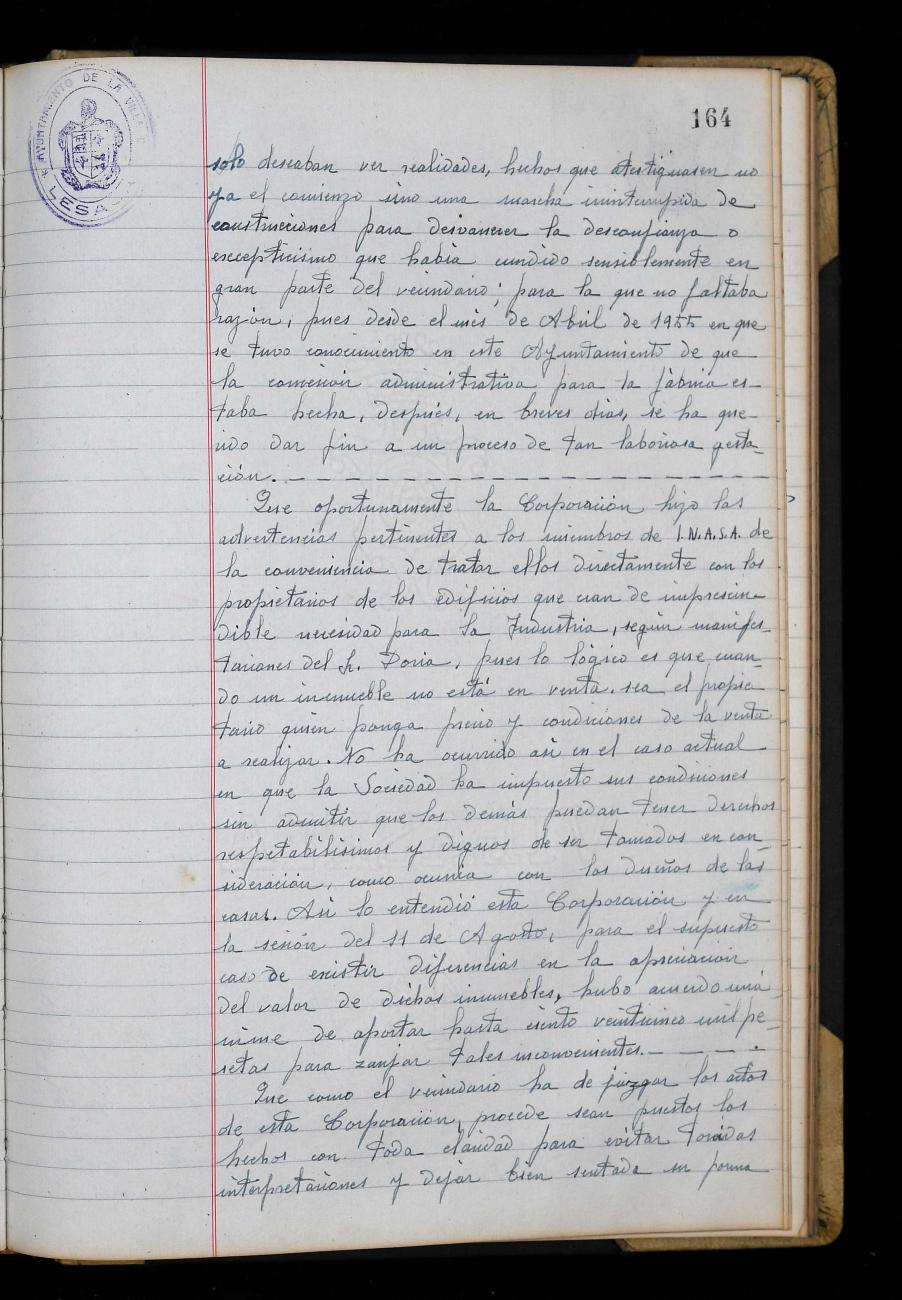 AYUNTAMIENTO DE LA VILLA
LESACA
164
solo deseaban ver realidades, hechos que atestiguasen no
ya el comienzo sino una marcha ininterrumpida de
construcciones para desvanecer la desconfianza o
escepticismo que había cundido sensiblemente en
gran parte del vecindario; para la que no faltaba
razón, pues desde el mes de Abril de 1955 en que
se tuvo conocimiento en este Ayuntamiento de que
la concesión administrativa para la fábrica es-
taba hecha, después, en breves días, se ha que-
rido dar fin a un proceso de tan laboriosa gesta-
ción. - - - - - - - - - -
Que oportunamente la Corporación hizo las
advertencias pertinentes a los miembros de I.N.A.S.A. de
la conveniencia de tratar ellos directamente con los
propietarios de los edificios que eran de imprescin-
dible necesidad para la Industria, según manifes-
taciones del Sr. Doria, pues lo lógico es que cuan-
do un inmueble no está en venta. sea el propie-
tario quien ponga precio y condiciones de la venta
a realizar. No ha ocurrido así en el caso actual
en que la Sociedad ha impuesto sus condiciones
sin admitir que los demás puedan tener derechos
respetabilísimos y dignos de ser tomados en con-
sideración, como ocurría con los dueños de las
casas. Así lo entendió esta Corporación y en
la sesión del 11 de Agosto, para el supuesto
caso de existir diferencias en la apreciación
del valor de dichos inmuebles, hubo acuerdo uná-
nime de aportar hasta ciento veinticinco mil pe-
setas para zanjar tales inconvenientes. - - - -
Que como el vecindario ha de juzgar los actos
de esta Corporación, procede sean puestos los
hechos con toda claridad para evitar torcidas
interpretaciones y dejar bien sentada su forma